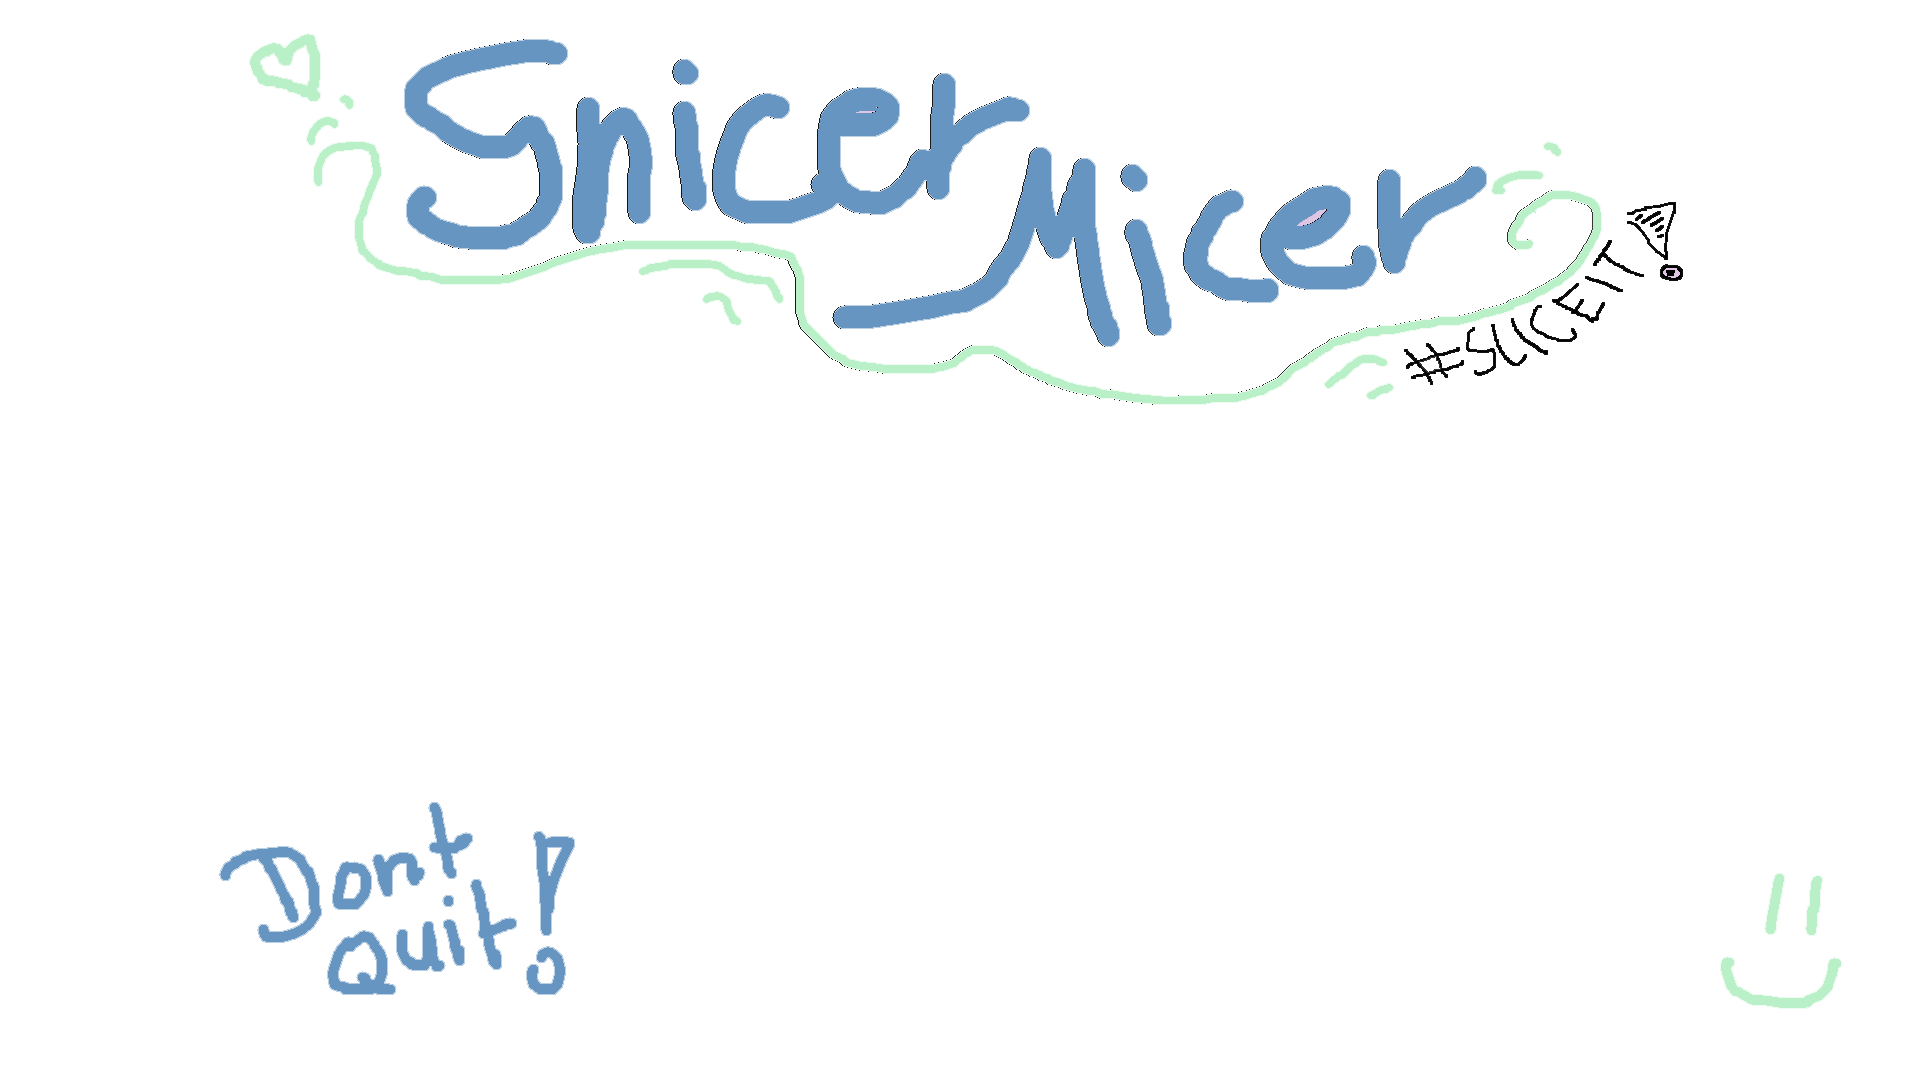 Snicer
Micer
#SLICEIT!
Dont
Quit!